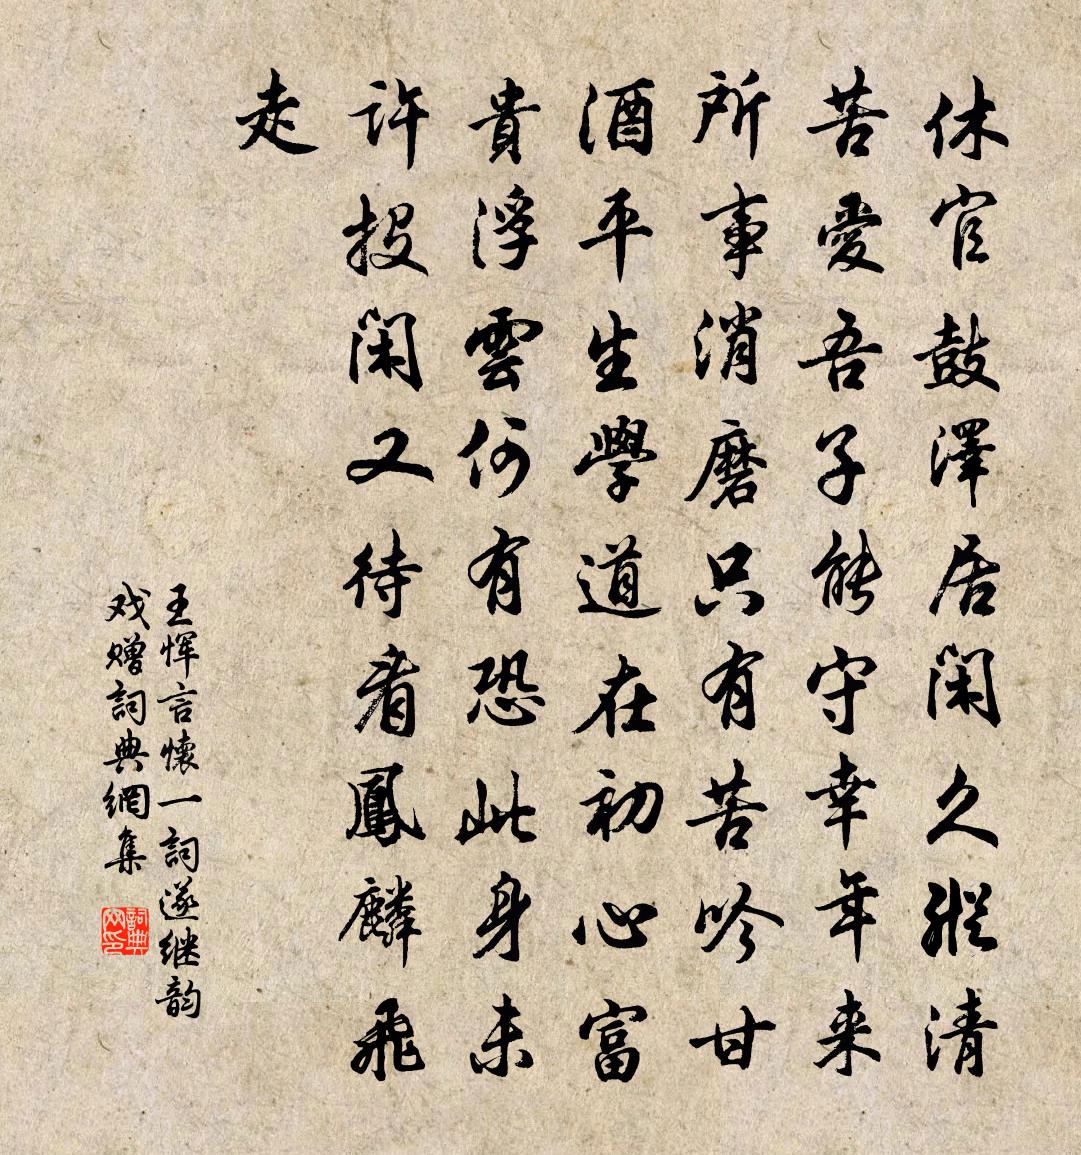 休官鼓澤居閑久縱清
苦愛吾子能守幸年来
所事消磨只有苦吟甘
酒平生學道在初心富
貴浮雲何有恐此身未
許投閑又待看鳳麟飛
走
王恽言懷一詞遂继韵
戏赠詞典網集
詞典网印